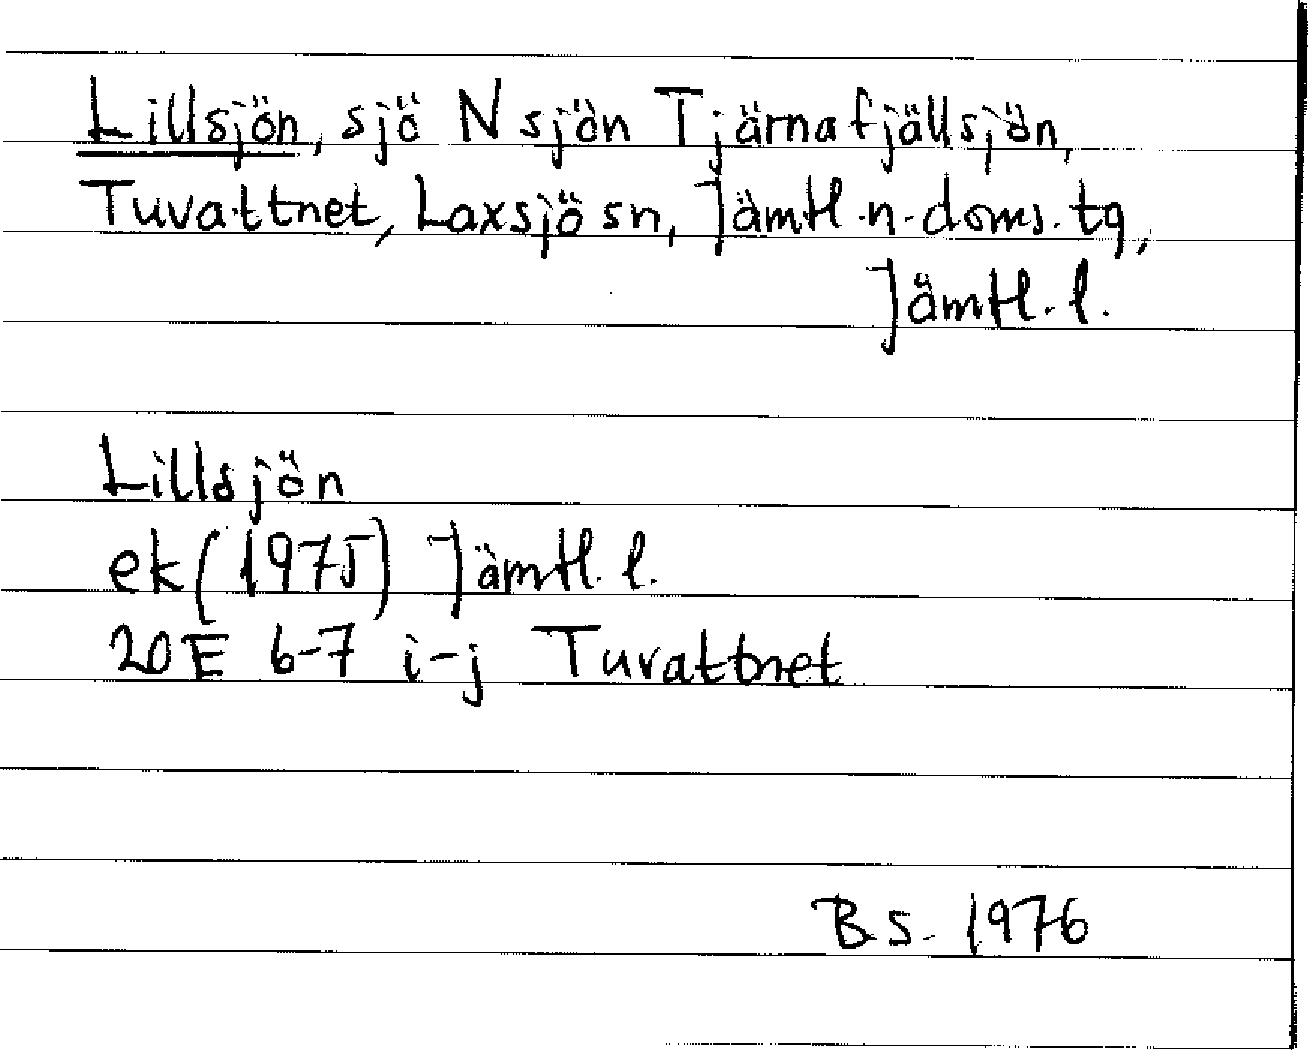 Lillsjön, sjö N sjön Tjärnafjällsjön,
Tuvattnet, Laxsjö sn, Jämtl. n. doms. tg,
Jämtl. l.
Lillsjön
ek (1975) Jämtl. l.
20E 6-7 i-j Tuvattnet
B.S. 1976